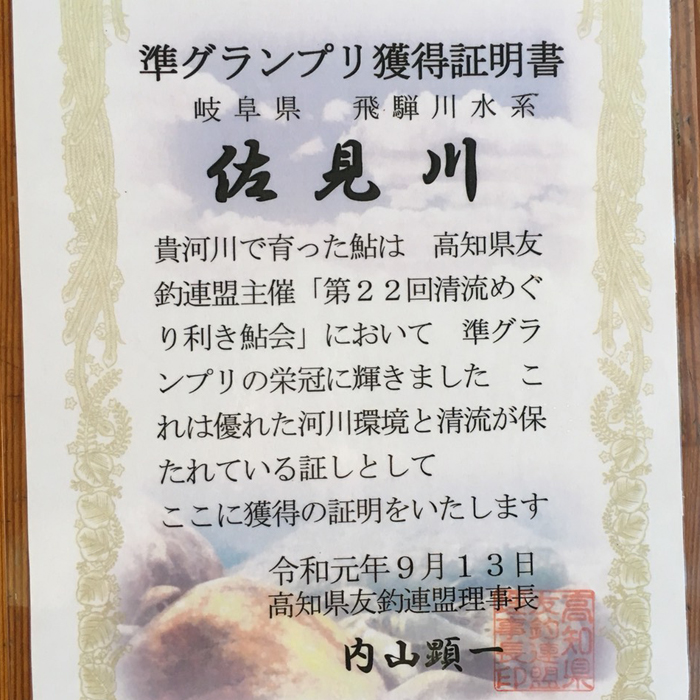 準グランプリ獲得証明書
岐阜県　飛騨川水系
佐見川
貴河川で育った鮎は　高知県友
釣連盟主催「第２２回清流めぐ
り利き鮎会」において　準グラ
ンプリの栄冠に輝きました　こ
れは優れた河川環境と清流が保
たれている証しとして
ここに獲得の証明をいたします
令和元年９月１３日
高知県友釣連盟理事長
内山顕一
高知県
友釣連盟